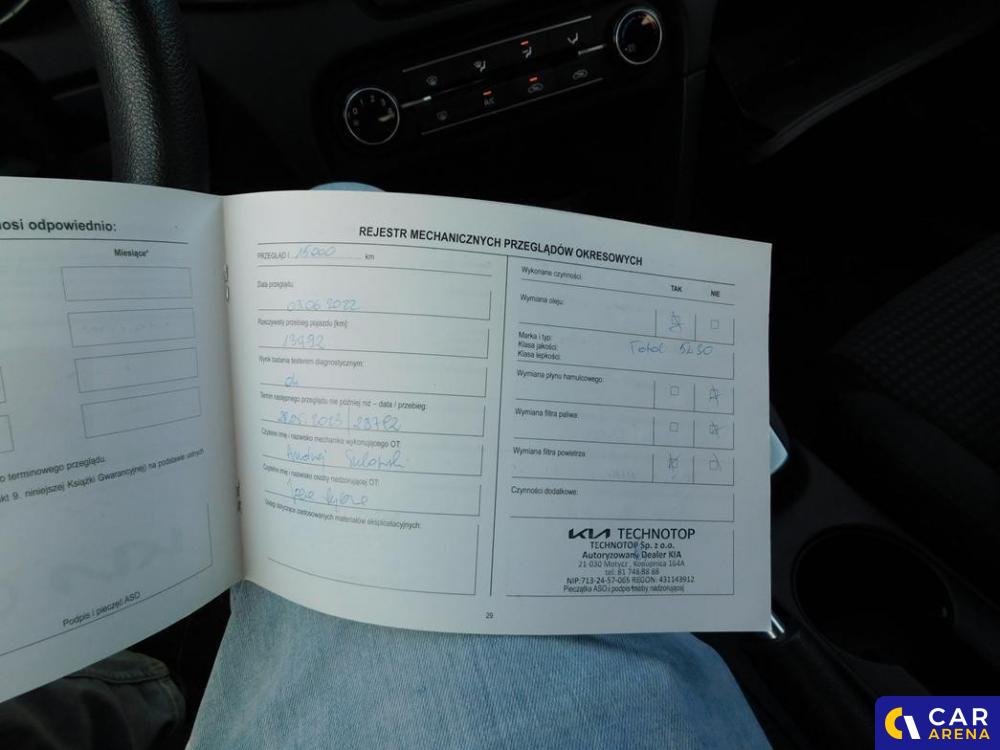 A/C
nosi odpowiednio:
Miesiące*
o terminowego przeglądu.
kt 9. niniejszej Książki Gwarancyjnej) na podstawie ustnych
Podpis i pieczęć ASO
REJESTR MECHANICZNYCH PRZEGLĄDÓW OKRESOWYCH
PRZEGLĄD I 15000 km
Data przeglądu:
03.06.2022
Rzeczywisty przebieg pojazdu [km]:
13992
Wynik badania testerem diagnostycznym:
ok
Termin następnego przeglądu nie później niż – data / przebieg:
2023
Czytelne imię i nazwisko mechanika wykonującego OT:
Czytelne imię i nazwisko osoby nadzorującej OT:
Uwagi dotyczące zastosowanych materiałów eksploatacyjnych:
Wykonane czynności:
TAK NIE
Wymiana oleju:
Marka i typ:
Klasa jakości:
Klasa lepkości:
Total 5W30
Wymiana płynu hamulcowego:
Wymiana filtra paliwa:
Wymiana filtra powietrza:
Czynności dodatkowe:
KIA TECHNOTOP
TECHNOTOP Sp. z o.o.
Autoryzowany Dealer KIA
21-030 Motycz, Konopnica 164A
tel: 81 748 88 88
NIP:713-24-57-065 REGON: 431143912
Pieczątka ASO i podpis osoby nadzorującej
29
CAR
ARENA